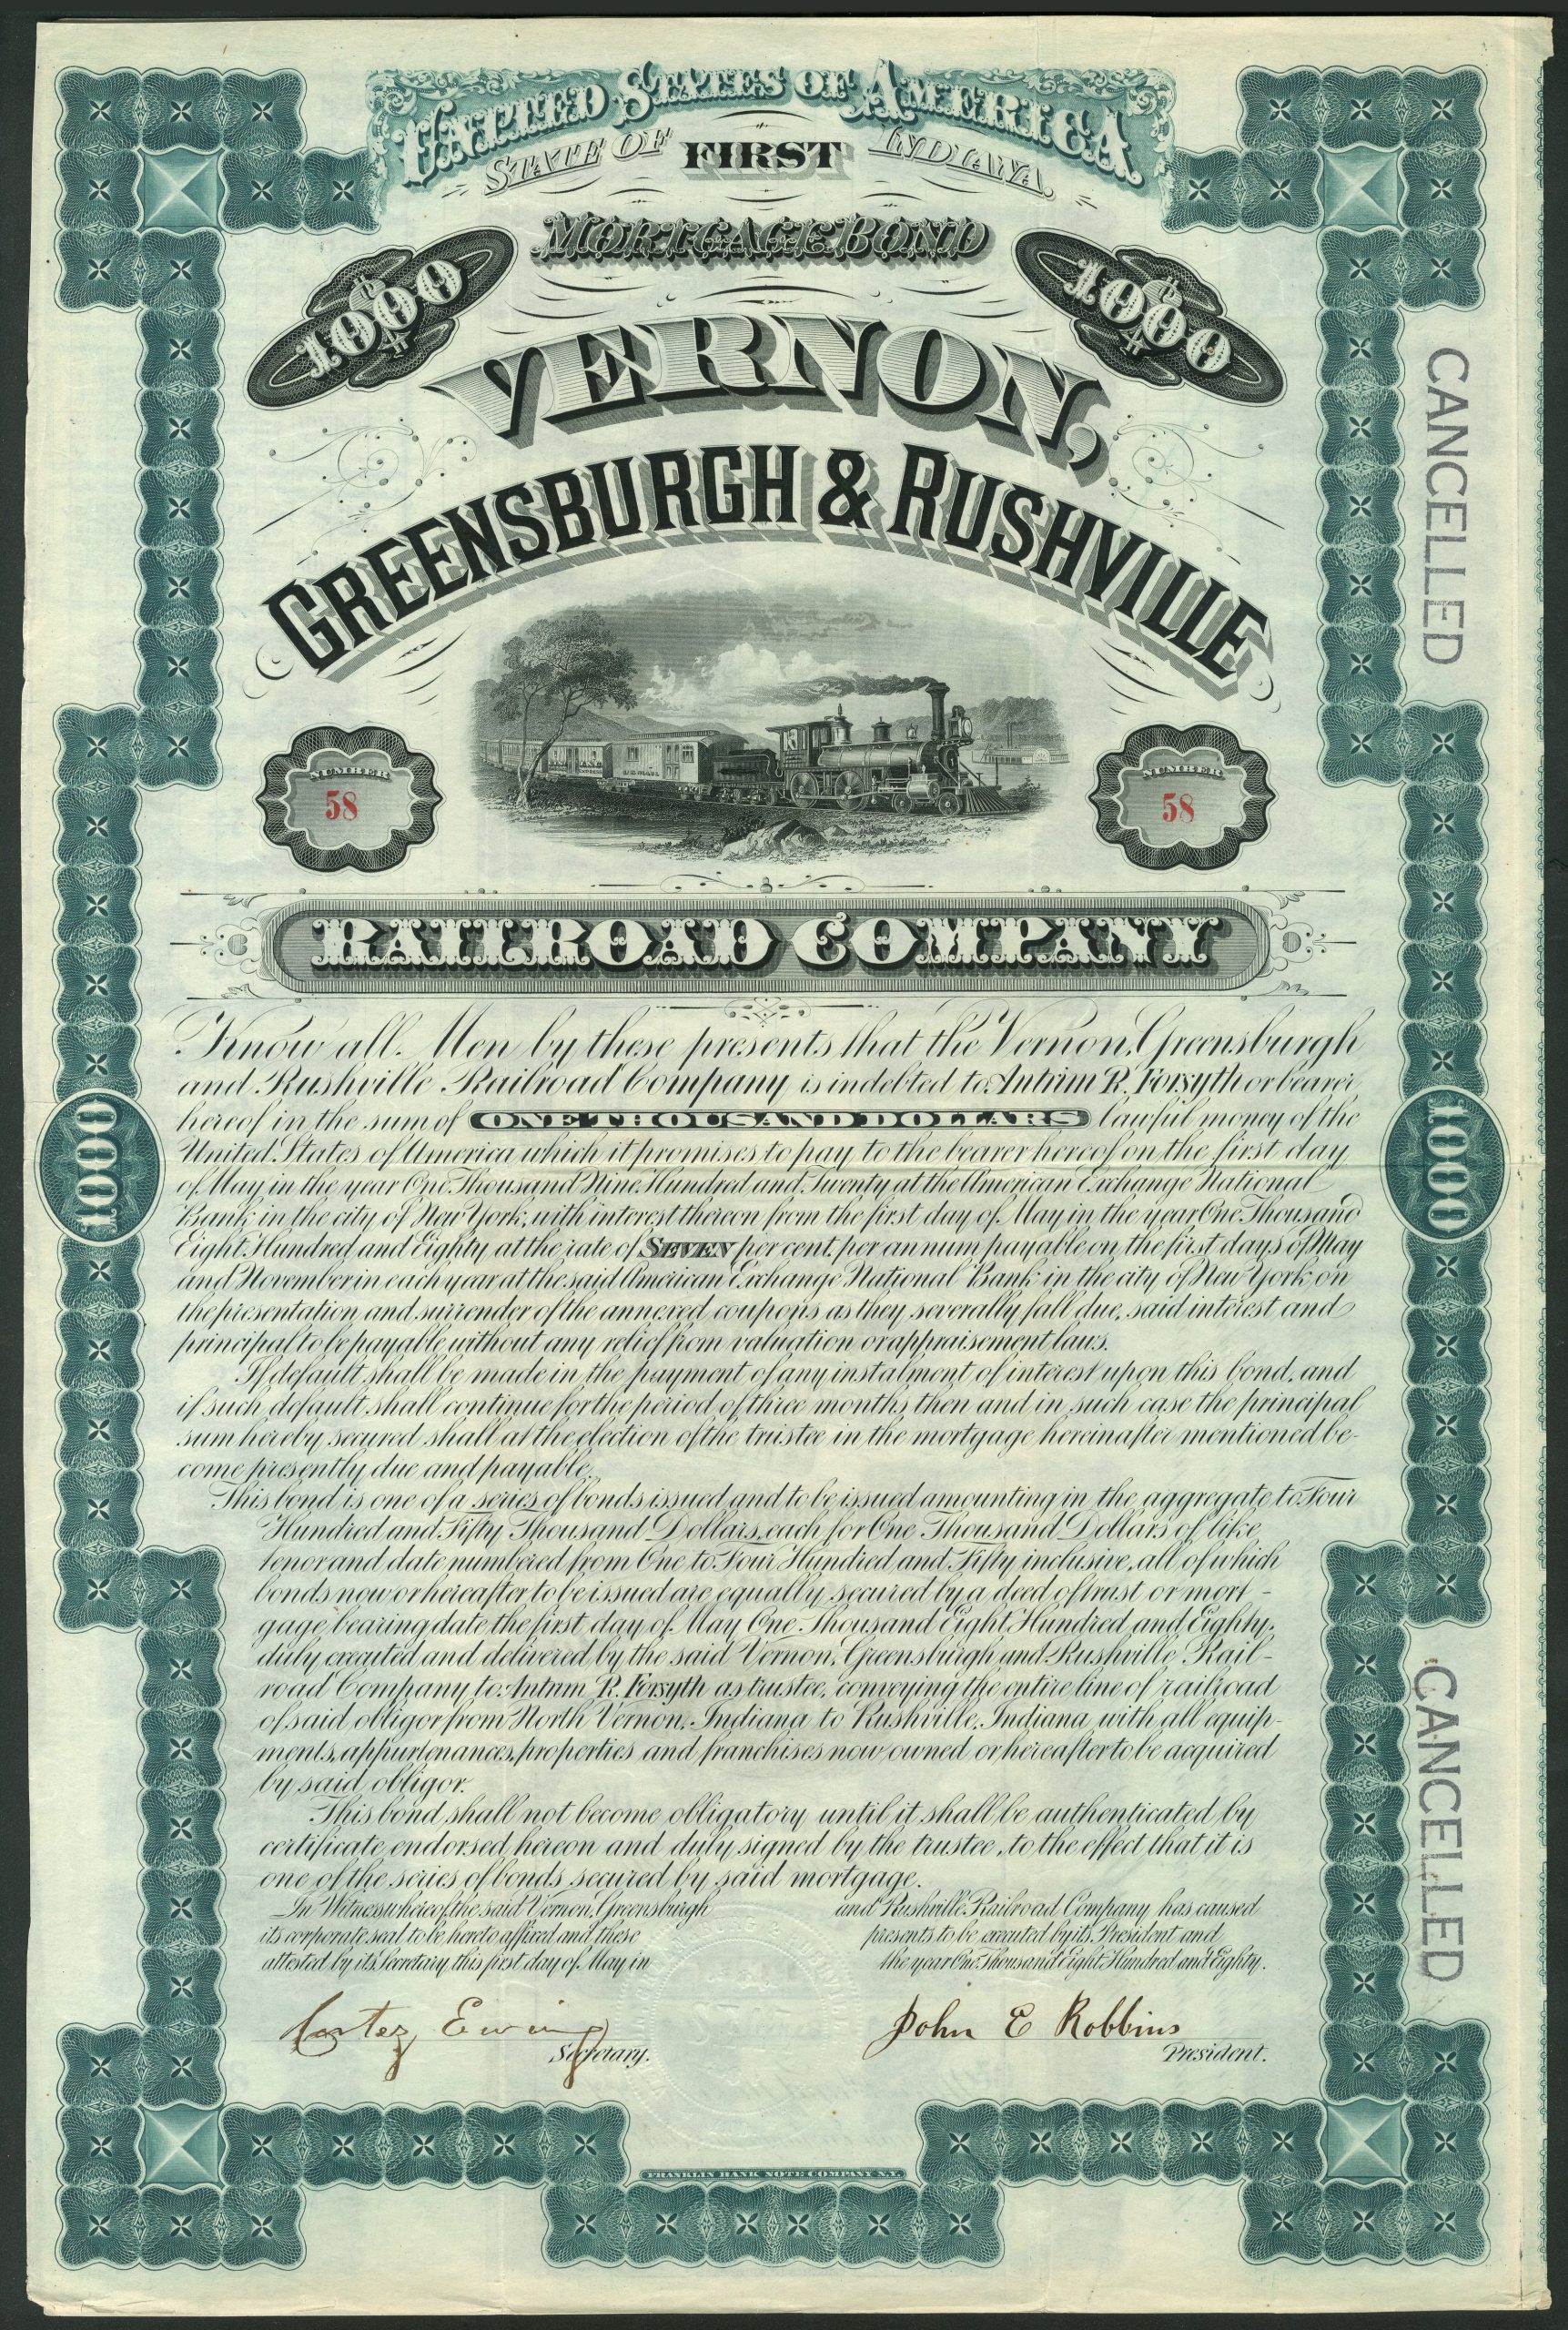 UNITED STATES OF AMERICA
STATE OF INDIANA
FIRST
MORTGAGE BOND
$1000 $1000
VERNON,
GREENSBURGH & RUSHVILLE
NUMBER
58
NUMBER
58
U.S. MAIL
EXPRESS
RAILROAD COMPANY
Know all Men by these presents that the Vernon, Greensburgh
and Rushville Railroad Company is indebted to Antrim R. Forsyth or bearer
hereof in the sum of ONE THOUSAND DOLLARS lawful money of the
United States of America which it promises to pay to the bearer hereof on the first day
of May in the year One Thousand Nine Hundred and Twenty at the American Exchange National
Bank in the city of New York, with interest thereon from the first day of May in the year One Thousand
Eight Hundred and Eighty at the rate of SEVEN per cent. per annum payable on the first days of May
and November in each year at the said American Exchange National Bank in the city of New York on
the presentation and surrender of the annexed coupons as they severally fall due, said interest and
principal to be payable without any relief from valuation or appraisement laws.
If default shall be made in the payment of any instalment of interest upon this bond, and
if such default shall continue for the period of three months then and in such case the principal
sum hereby secured shall at the election of the trustee in the mortgage hereinafter mentioned be-
come presently due and payable.
This bond is one of a series of bonds issued and to be issued amounting in the aggregate to Four
Hundred and Fifty Thousand Dollars, each for One Thousand Dollars of like
tenor and date numbered from One to Four Hundred and Fifty inclusive, all of which
bonds now or hereafter to be issued are equally secured by a deed of trust or mort-
gage bearing date the first day of May One Thousand Eight Hundred and Eighty,
duly created and delivered by the said Vernon, Greensburgh and Rushville Rail-
road Company to Antrim R. Forsyth as trustee, conveying the entire line of railroad
of said obligor from North Vernon, Indiana to Rushville, Indiana with all equip-
ments, appurtenances, properties and franchises now owned or hereafter to be acquired
by said obligor.
This bond shall not become obligatory until it shall be authenticated by
certificate endorsed hereon and duly signed by the trustee, to the effect that it is
one of the series of bonds secured by said mortgage.
In Witness whereof, the said Vernon, Greensburgh and Rushville Railroad Company has caused
its corporate seal to be hereto affixed and these presents to be executed by its President and
attested by its Secretary this first day of May in the year One Thousand Eight Hundred and Eighty.
Cortez Ewing
Secretary.
John E Robbins
President.
FRANKLIN BANK NOTE COMPANY N.Y.
1000
1000
CANCELLED
CANCELLED